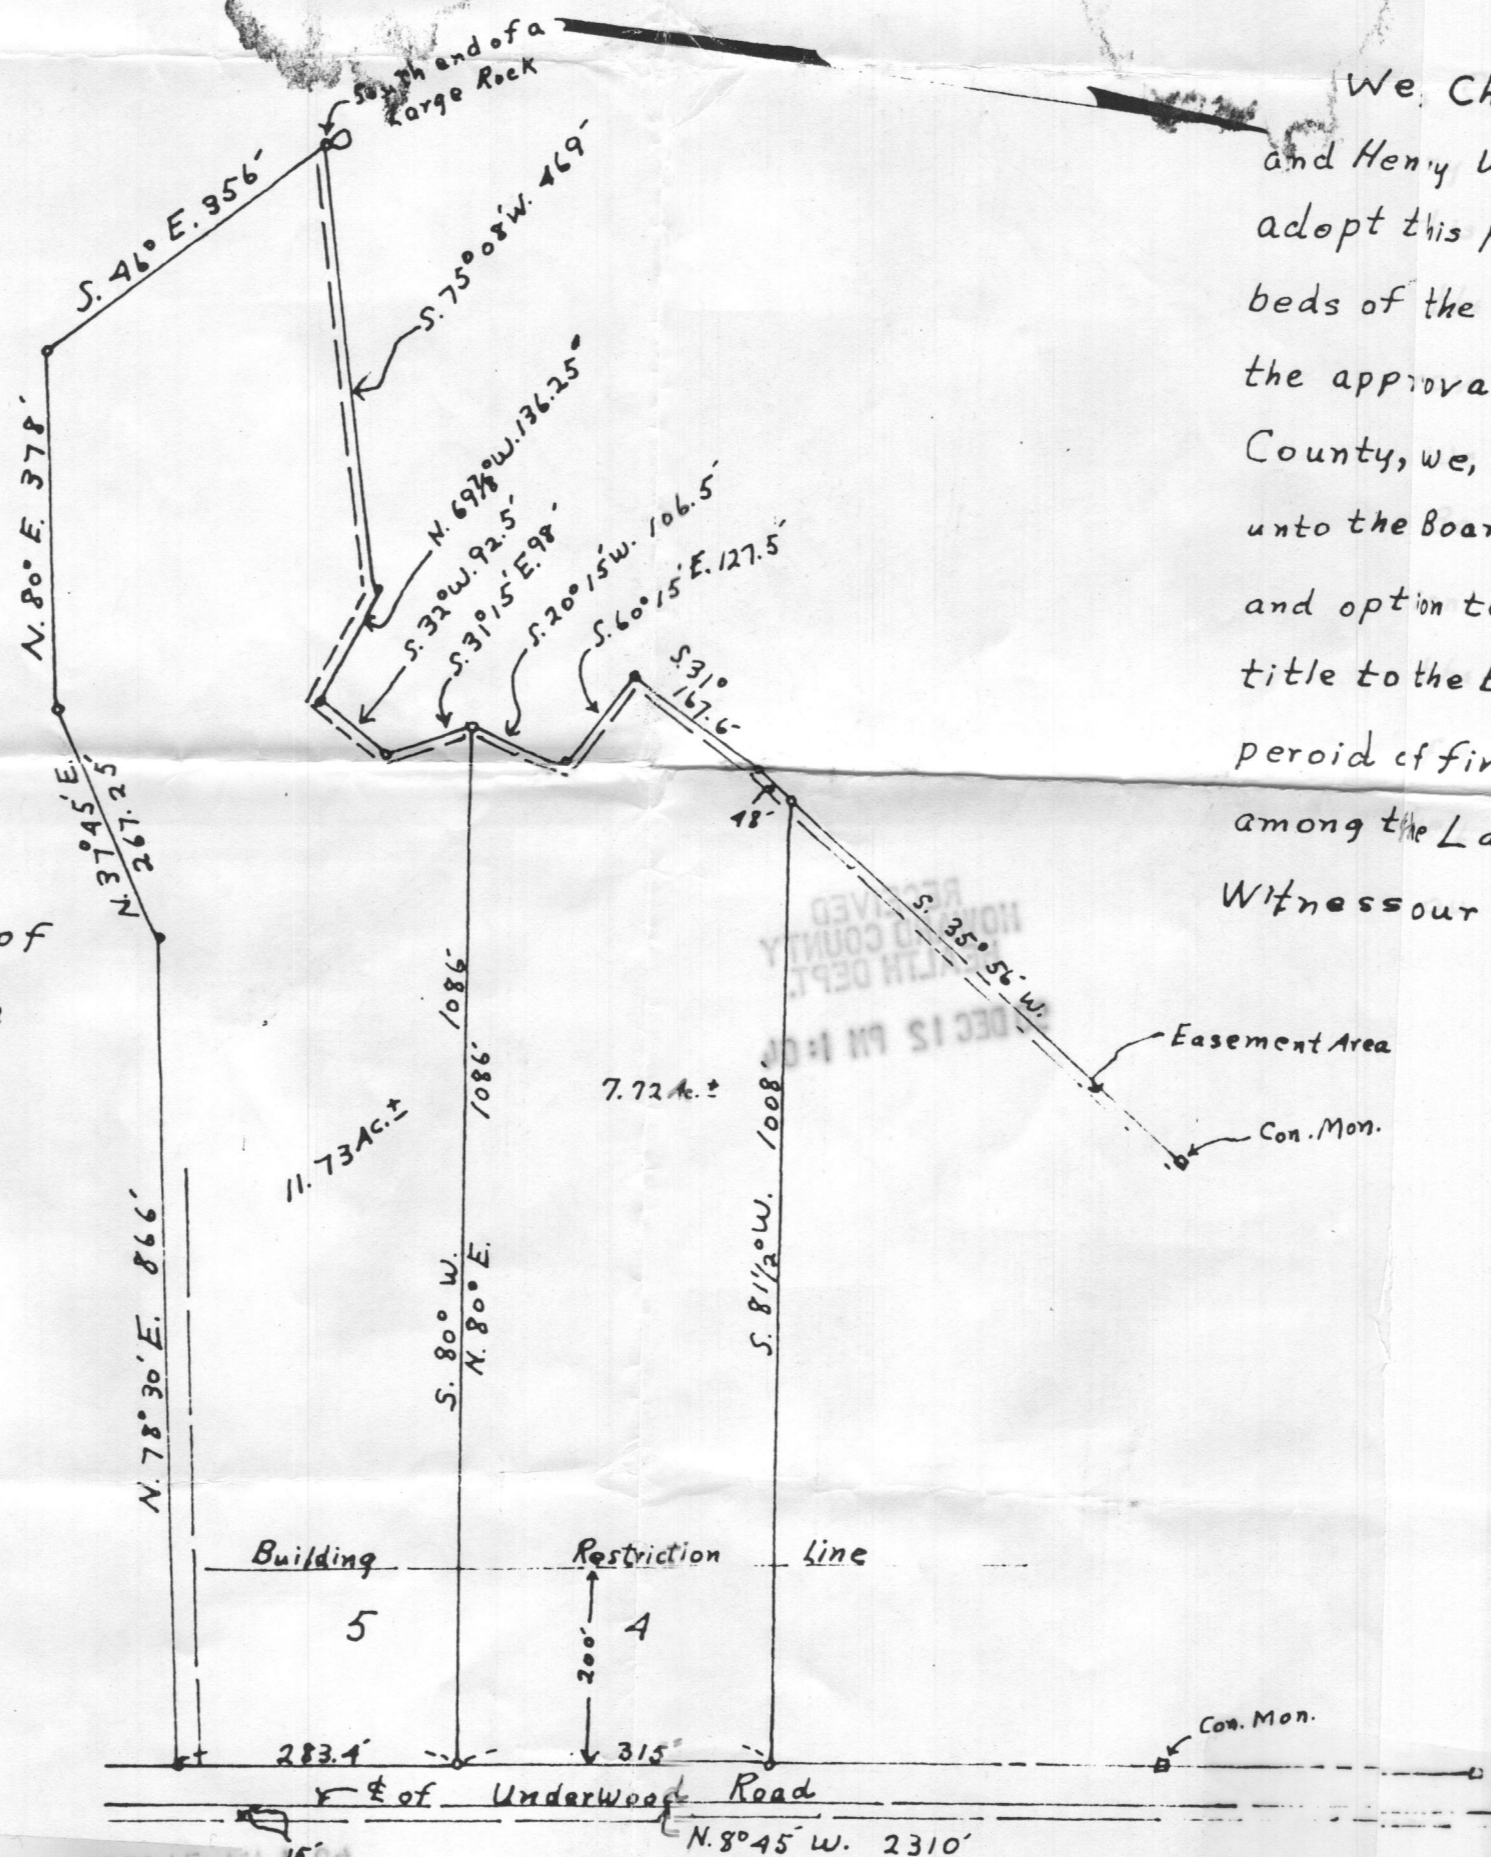 South end of a
Large Rock
S. 46° E. 356'
S. 75° 08' W. 469'
N. 80° E. 378'
N. 69⅞° W. 136.25'
S. 32° W. 92.5'
S. 31° 15' E. 98'
S. 20° 15' W. 106.5'
S. 60° 15' E. 127.5'
S. 31°
167.6'
48'
N. 37° 45' E.
267.25'
of
S. 35° 56' W.
RECEIVED
HOWARD COUNTY
HEALTH DEPT.
DEC 12 PM 1:04
Easement Area
Con. Mon.
1086'
1086'
7.72 Ac. ±
1008'
11.73 Ac. ±
N. 78° 30' E. 866'
S. 80° W.
N. 80° E.
S. 81 1/2° W.
Building Restriction Line
5
4
200'
283.4'
315'
Con. Mon.
℄ of Underwood Road
15'
N. 8° 45' W. 2310'
We, Ch
and Henry
adopt this
beds of the
the approva
County, we,
unto the Boar
and option t
title to the
peroid of fi
among the La
Witness our